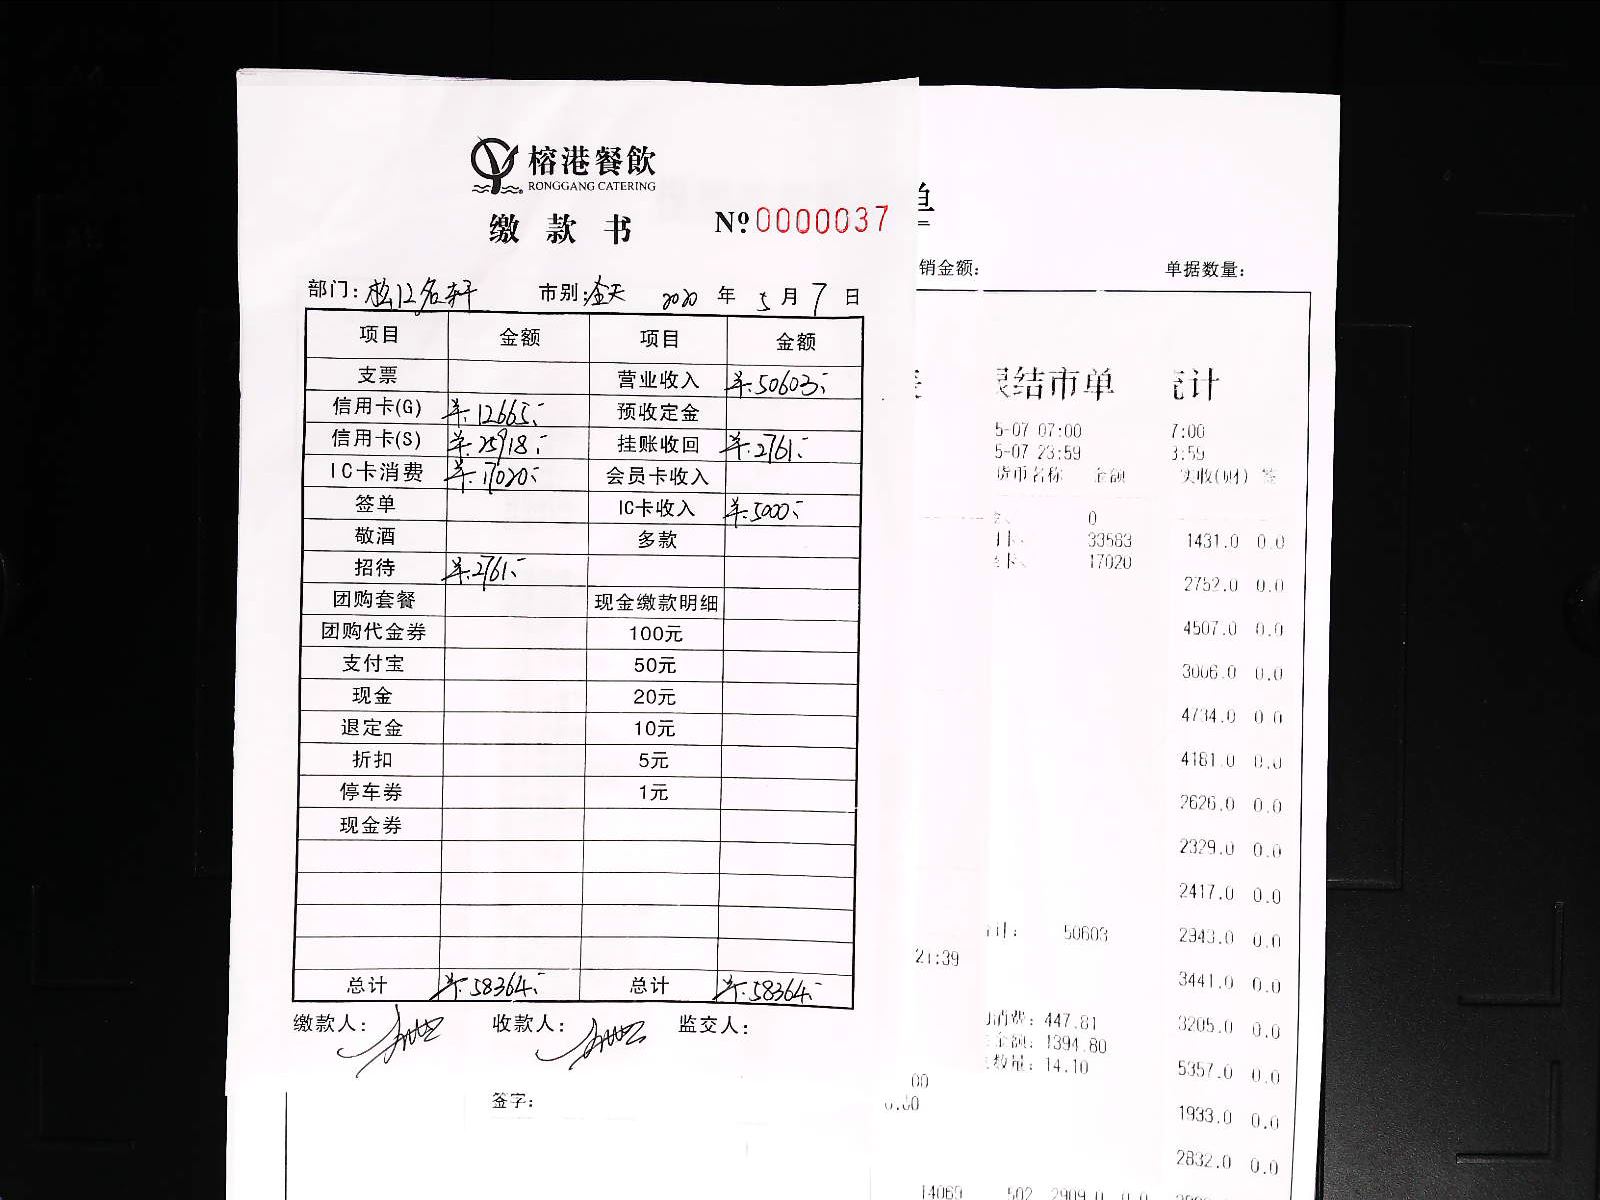 榕港餐飲
RONGGANG CATERING
缴款书 №0000037
部门: 市别:全天 2020年5月7日
项目 金额 项目 金额
支票 营业收入 羊.50603.-
信用卡(G) 羊.12665.- 预收定金
信用卡(S) 羊.25918.- 挂账收回 羊.2761.-
IC卡消费 羊.17020.- 会员卡收入
签单 IC卡收入 羊.5000.-
敬酒 多款
招待 羊.2761.-
团购套餐 现金缴款明细
团购代金券 100元
支付宝 50元
现金 20元
退定金 10元
折扣 5元
停车券 1元
现金券
总计 羊.58364.- 总计 羊.58364.-
缴款人: 收款人: 监交人:
签字:
单
销金额: 单据数量:
结市单
5-07 07:00
5-07 23:59
货币名称 金额
0
33583
17020
50603
21:39
消费: 447.81
金额: 1394.80
数量: 14.10
00
0.00
14069 502 2909.0 0.0
统计
7:00
3:59
实收(财) 签
1431.0 0.0
2752.0 0.0
4507.0 0.0
3006.0 0.0
4734.0 0.0
4181.0 0.0
2626.0 0.0
2329.0 0.0
2417.0 0.0
2943.0 0.0
3441.0 0.0
3205.0 0.0
5357.0 0.0
1933.0 0.0
2832.0 0.0